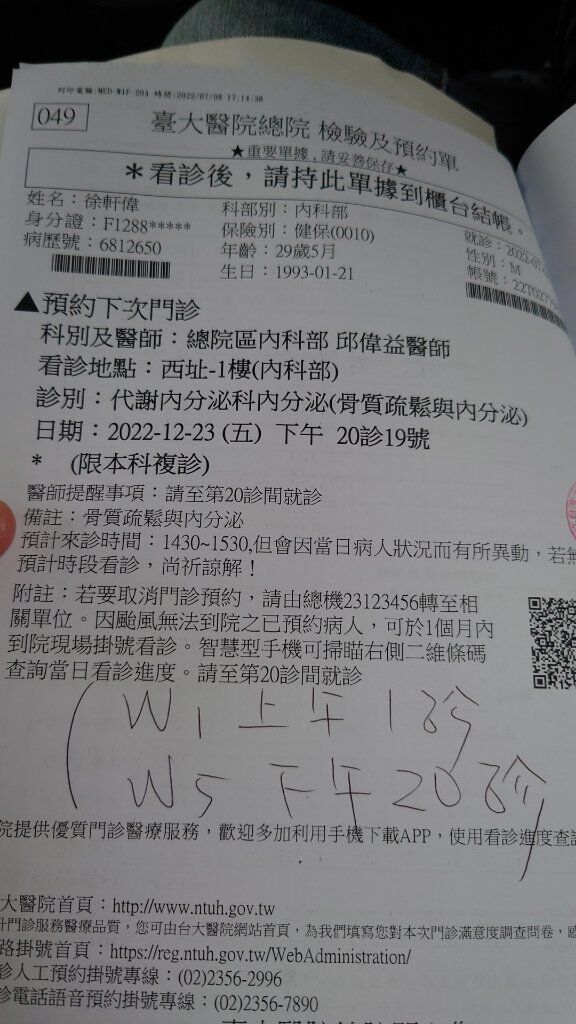 列印電腦:MED-W1F-20A 時間:2022/07/08 17:14:38
049
臺大醫院總院 檢驗及預約單
★重要單據,請妥善保存★
＊看診後，請持此單據到櫃台結帳。
姓名：徐軒偉 科部別：內科部 就診：2022-07
身分證：F1288***** 保險別：健保(0010) 性別：M
病歷號：6812650 年齡：29歲5月 帳號：22T0277
生日：1993-01-21
▲預約下次門診
科別及醫師：總院區內科部 邱偉益醫師
看診地點：西址-1樓(內科部)
診別：代謝內分泌科內分泌(骨質疏鬆與內分泌)
日期：2022-12-23 (五) 下午 20診19號
* (限本科複診)
醫師提醒事項：請至第20診間就診
備註：骨質疏鬆與內分泌
預計來診時間：1430~1530,但會因當日病人狀況而有所異動，若無
預計時段看診，尚祈諒解！
附註：若要取消門診預約，請由總機23123456轉至相
關單位。因颱風無法到院之已預約病人，可於1個月內
到院現場掛號看診。智慧型手機可掃瞄右側二維條碼
查詢當日看診進度。請至第20診間就診
W1 上午 1診
W5 下午 20診
院提供優質門診醫療服務，歡迎多加利用手機下載APP，使用看診進度查
大醫院首頁：http://www.ntuh.gov.tw
升門診服務醫療品質，您可由台大醫院網站首頁，為我們填寫您對本次門診滿意度調查問卷，
路掛號首頁：https://reg.ntuh.gov.tw/WebAdministration/
診人工預約掛號專線：(02)2356-2996
診電話語音預約掛號專線：(02)2356-7890